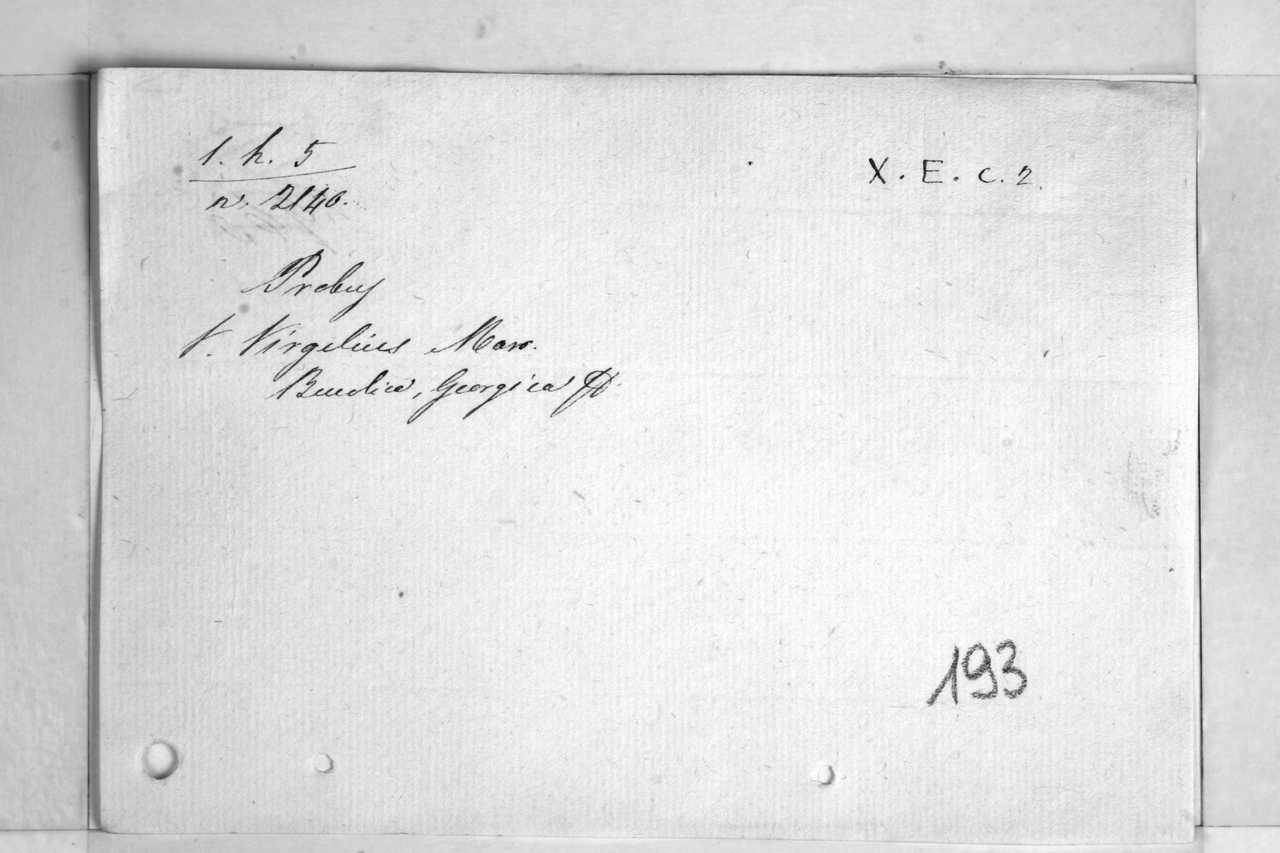 1. h. 5
X. E. c. 2.
n. 2140.
Probus
V. Virgilius Maro.
Bucolica, Georgica
193